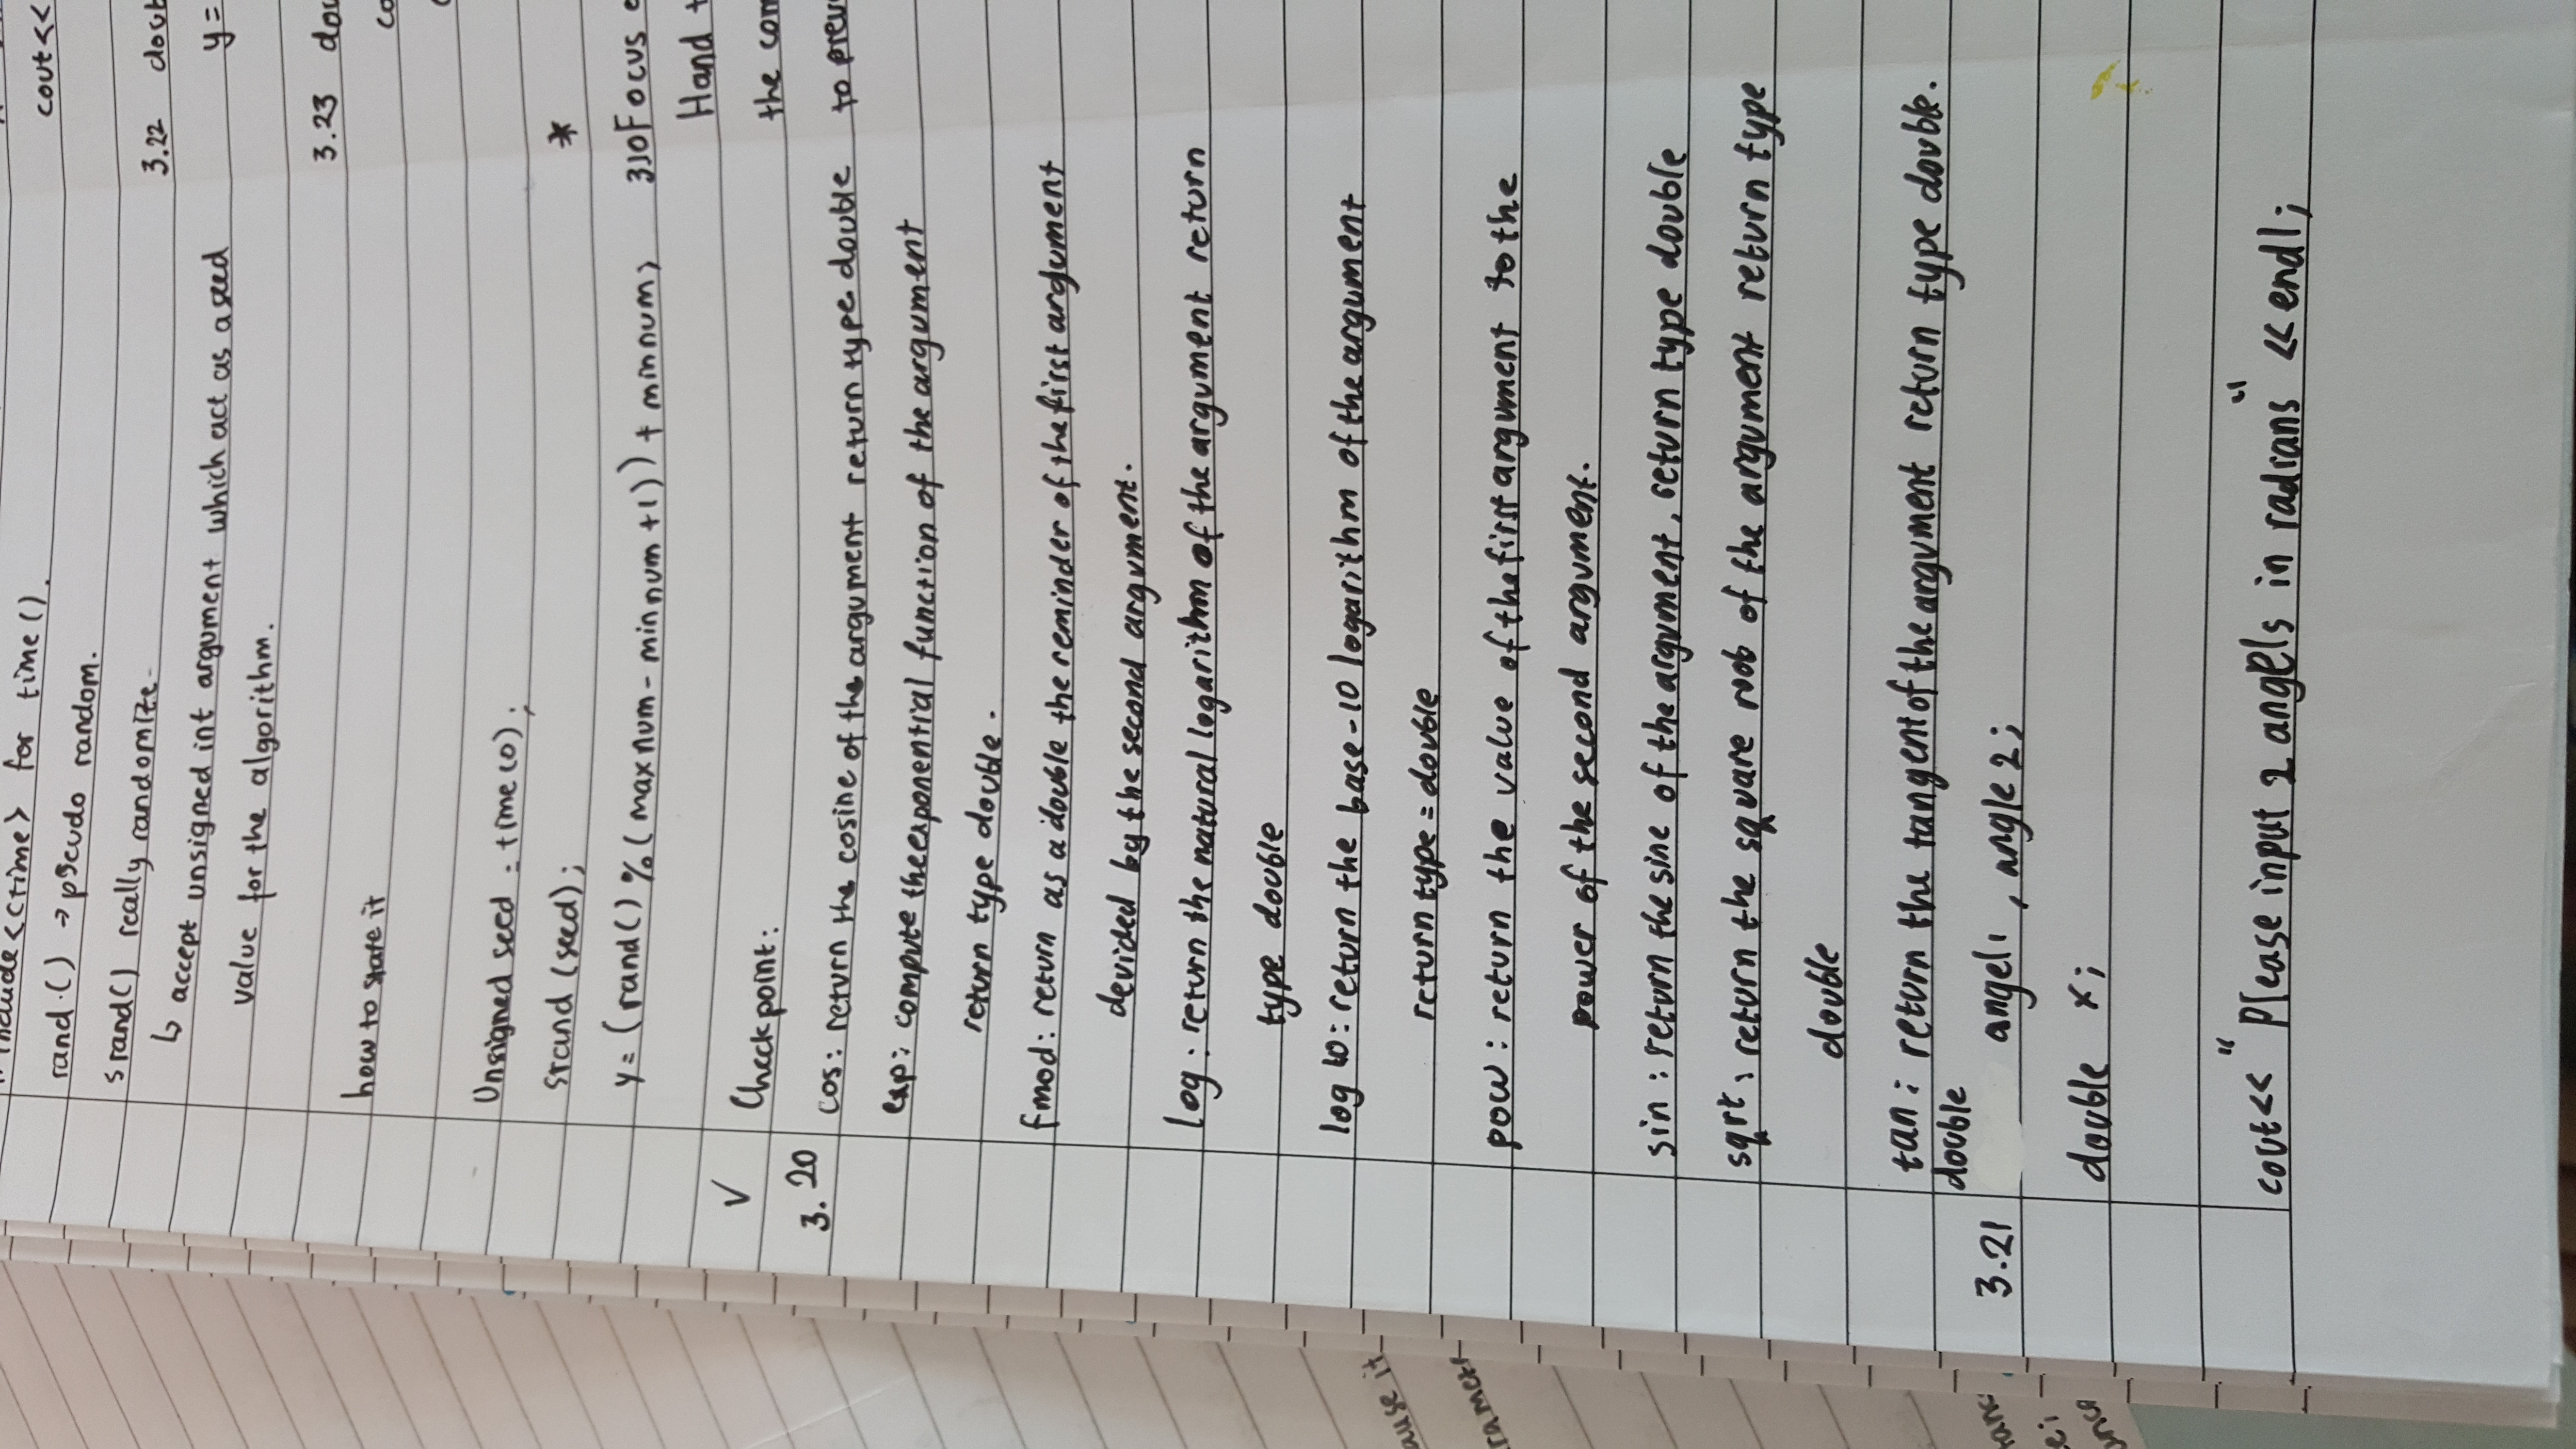 include <ctime> for time().
rand.() → pseudo random.
srand() really randomize.
↳ accept unsigned int argument which act as a seed
value for the algorithm.
how to state it
Unsigned seed = time(0);
srand (seed);
y = (rand() % (maxnum - minnum +1)) + minnum;
✓ Checkpoint:
3.20
cos: return the cosine of the argument return type double
exp: compute the exponential function of the argument
return type double.
fmod: return as a double the reminder of the first argument
devided by the second argument.
log: return the natural logarithm of the argument return
type double
log 10: return the base-10 logarithm of the argument
return type = double
pow: return the value of the first argument to the
power of the second argument.
sin: return the sine of the argument, return type double
sqrt: return the square roob of the argument return type
double
tan: return the tangent of the argument return type double.
double
3.21 angel1, angle2;
double x;
cout<< "Please input 2 angels in radians" << endl;
cout<<
3.22 doub
y=
3.23 dou
co
*
310 Focus
Hand
the com
to prev
ause it
ramet